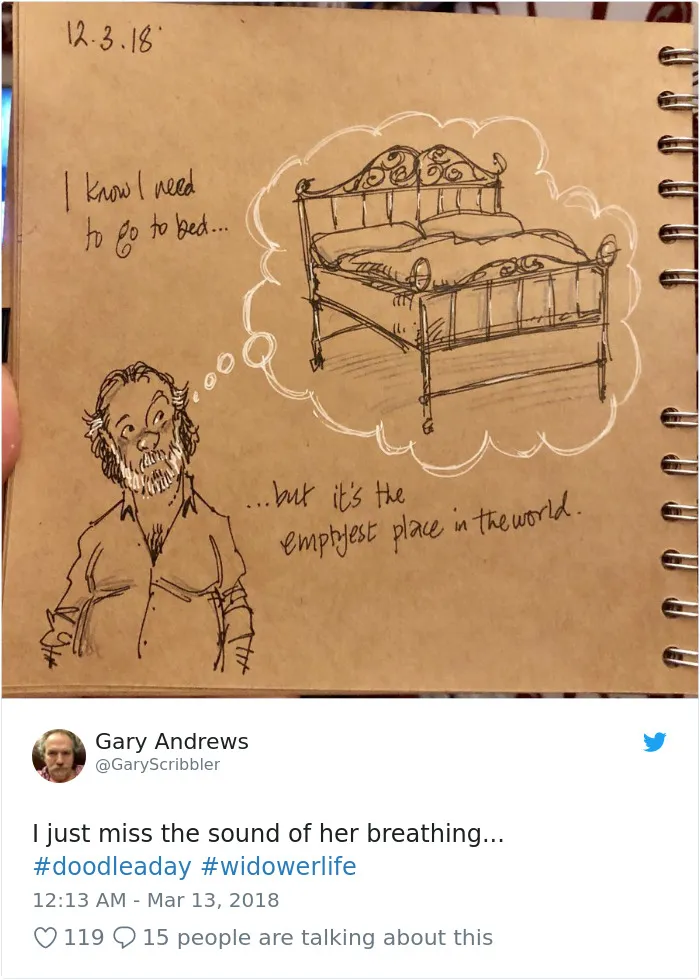 12.3.18
I know I need
to go to bed...
...but it's the
emptyest place in the world.
Gary Andrews
@GaryScribbler
I just miss the sound of her breathing...
#doodleaday #widowerlife
12:13 AM - Mar 13, 2018
119 15 people are talking about this